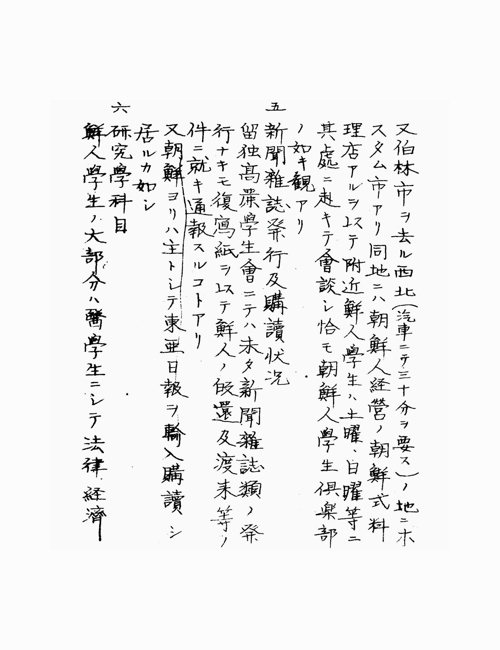 又伯林市ヲ去ル西北(汽車ニテ三十分ヲ要ス)ノ地ニホ
スタム市アリ同地ニハ朝鮮人経営ノ朝鮮式料
理店アルヲ以テ附近鮮人學生ハ土曜、日曜等ニ
其處ニ赴キテ會談シ恰モ朝鮮人學生倶楽部
ノ如キ観アリ
五 新聞雜誌発行及購讀状况
留独髙麗學生會ニテハ未タ新聞雜誌類ノ発
行ナキモ復寫紙ヲ以テ鮮人ノ皈還及渡来等ノ
件ニ就キ通報スルコトアリ
又朝鮮ヨリハ主トシテ東亜日報ヲ輸入購讀シ
居ルカ如シ
六 研究學科目
鮮人學生ノ大部分ハ醫學生ニシテ法律、経濟